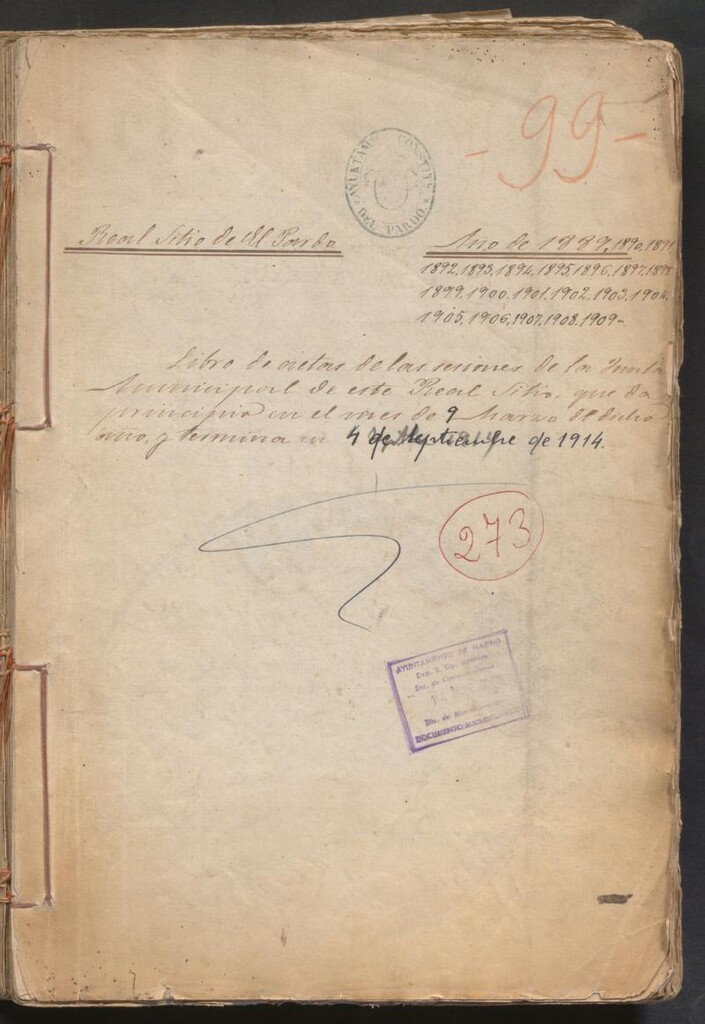 - 99 -
AYUNTAM. CONSTIT. DEL PARDO
Real Sitio de El Pardo
Año de 1889, 1890, 1891,
1892, 1893, 1894, 1895, 1896, 1897, 1898
1899, 1900, 1901, 1902, 1903, 1904,
1905, 1906, 1907, 1908, 1909-
Libro de actas de las sesiones de la Junta
Municipal de este Real Sitio, que da
principio en el mes de 9 Marzo de dicho
año, y termina en 4 de Septiembre de 1914.
273
AYUNTAMIENTO DE MADRID